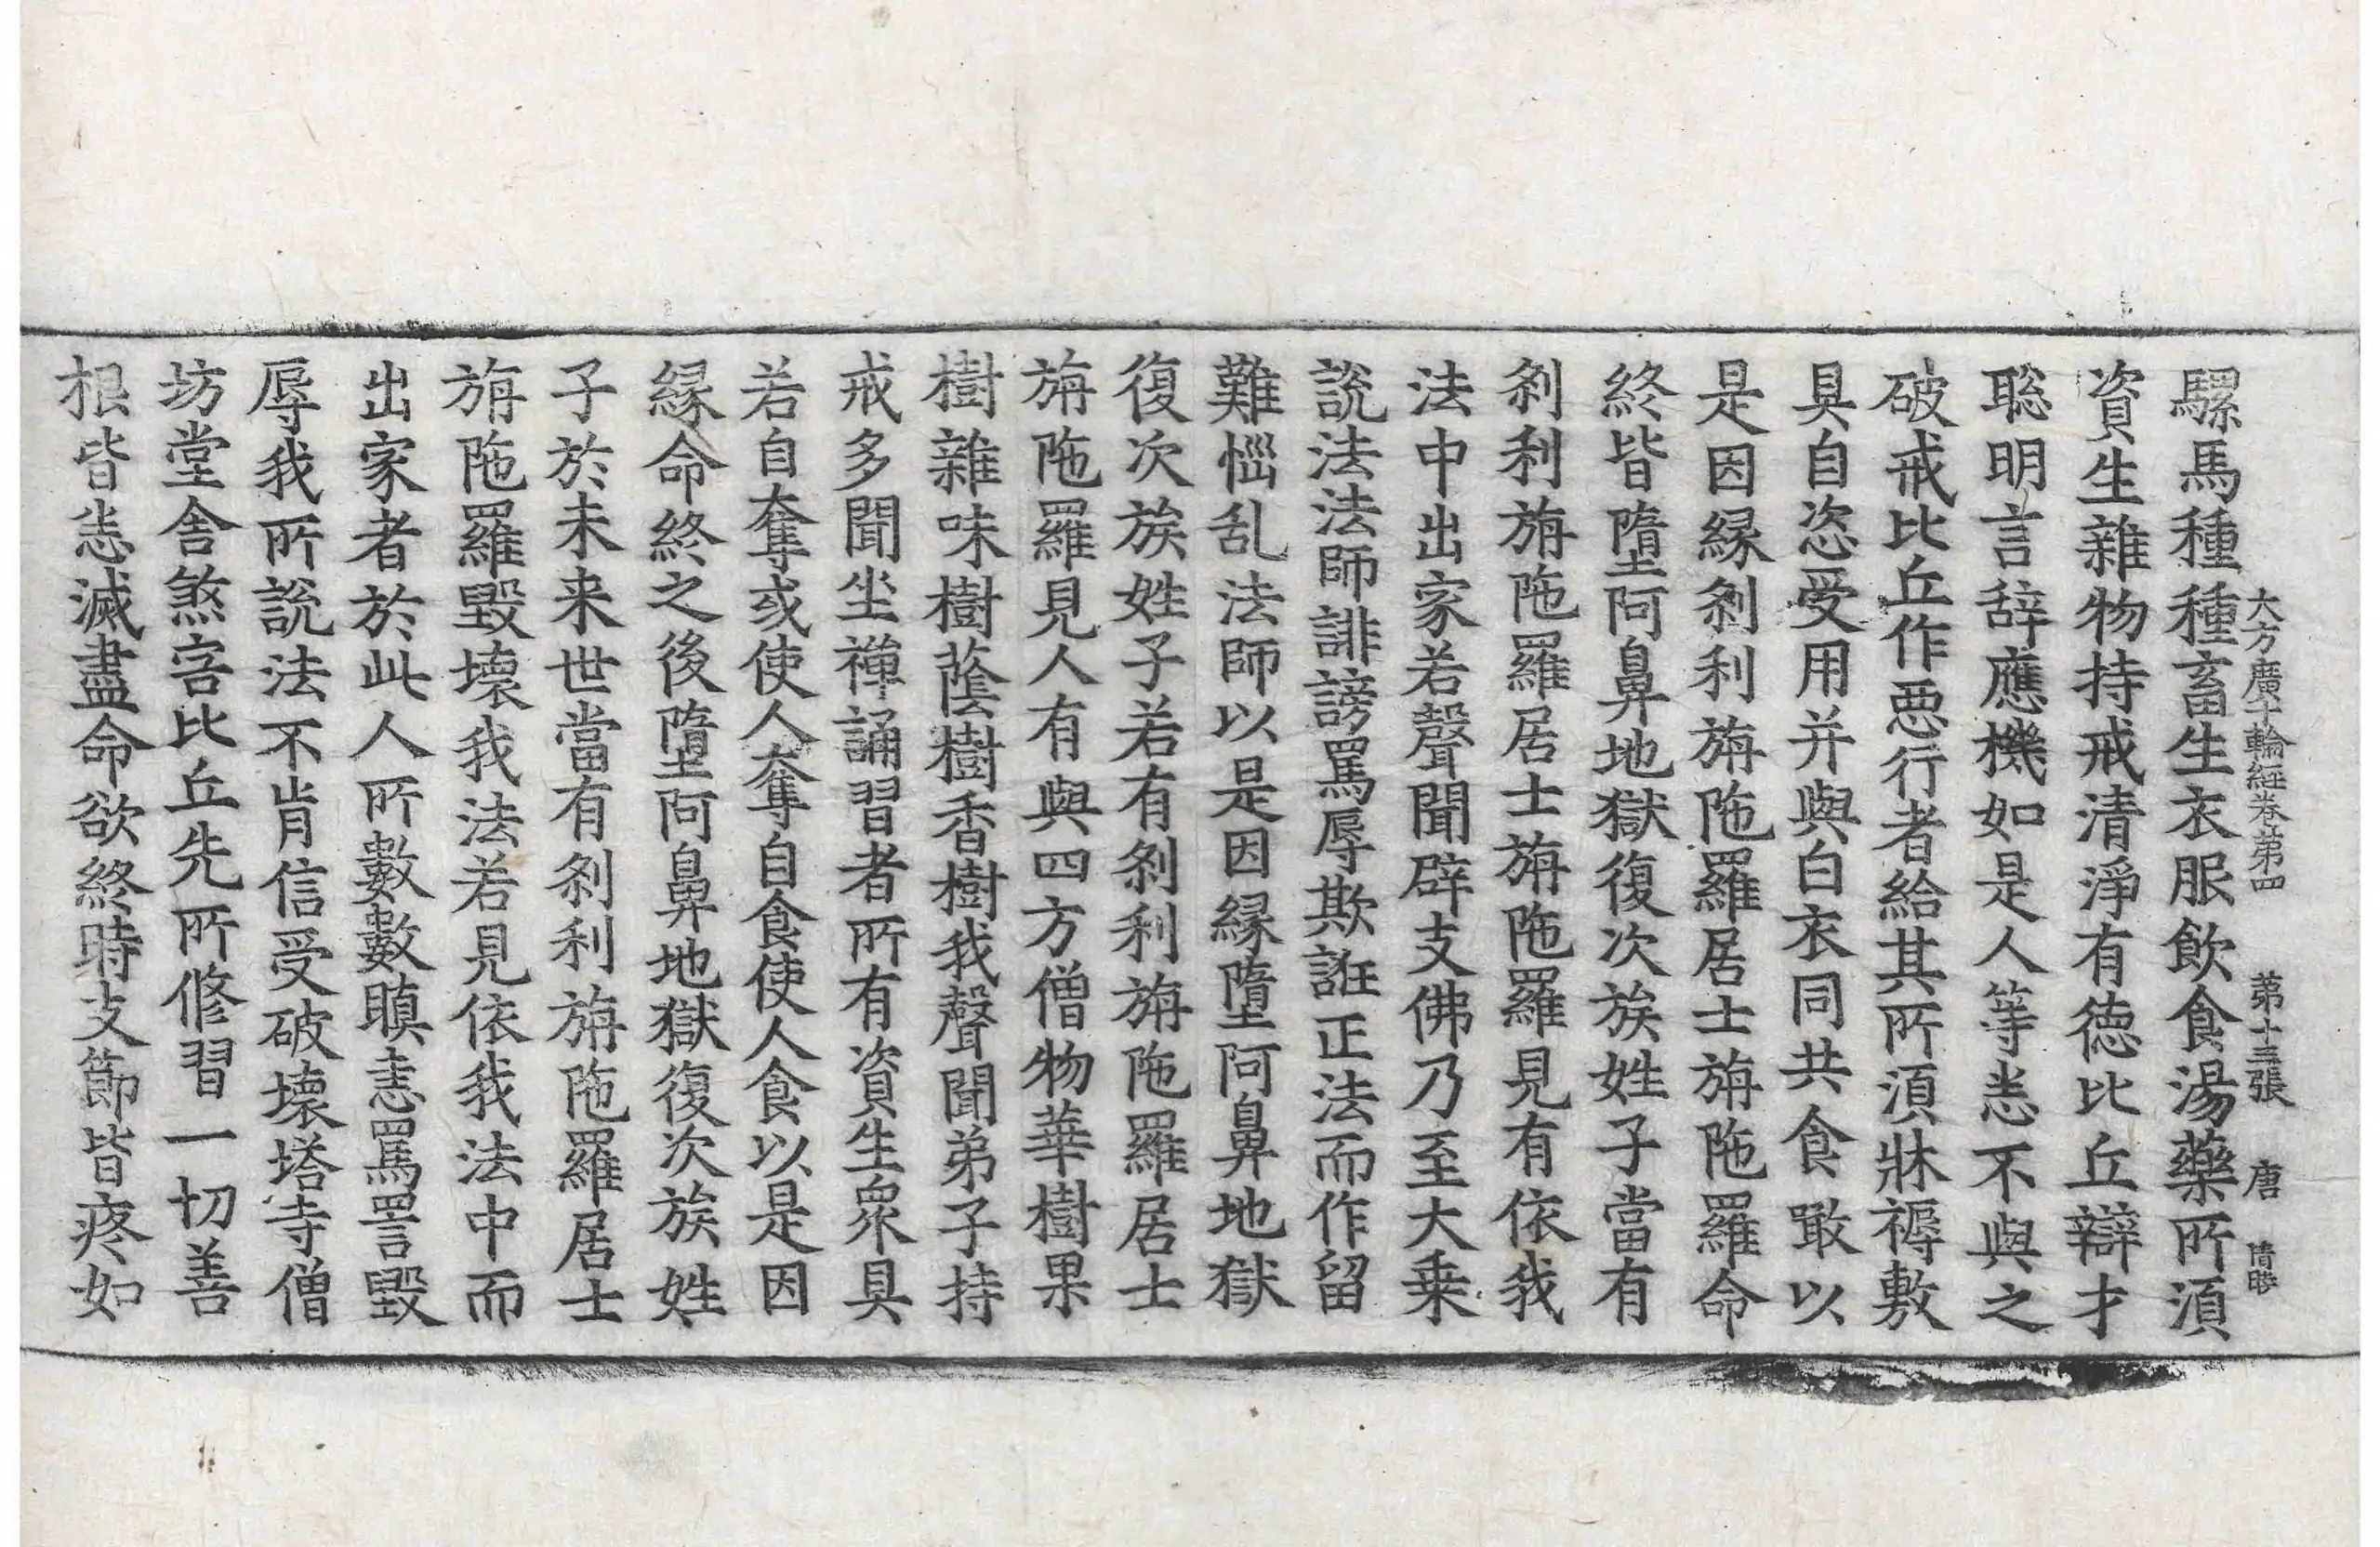 大方廣十輪經卷第四 第十三張 唐
騾馬種種畜生衣服飲食湯藥所湏
資生雜物持戒清淨有德比丘辯才
聡明言辞應機如是人等恚不與之
破戒比丘作惡行者給其所湏牀褥敷
具自恣受用并與白衣同共食噉以
是因縁刹利旃陁羅居士旃陁羅命
終皆墮阿鼻地獄復次族姓子當有
刹利旃陁羅居士旃陁羅見有依我
法中出家若聲聞辟支佛乃至大乗
說法法師誹謗罵辱欺誑正法而作留
難惱乱法師以是因縁墮阿鼻地獄
復次族姓子若有刹利旃陁羅居士
旃陁羅見人有與四方僧物華樹果
樹雜味樹蔭樹香樹我聲聞弟子持
戒多聞坐禪誦習者所有資生衆具
若自奪或使人奪自食使人食以是因
縁命終之後墮阿鼻地獄復次族姓
子於未来世當有刹利旃陁羅居士
旃陁羅毀壞我法若見依我法中而
出家者於此人所數數瞋恚罵詈毀
辱我所說法不肯信受破壞塔寺僧
坊堂舎煞害比丘先所修習一切善
根皆恚滅盡命欲終時支節皆疼如